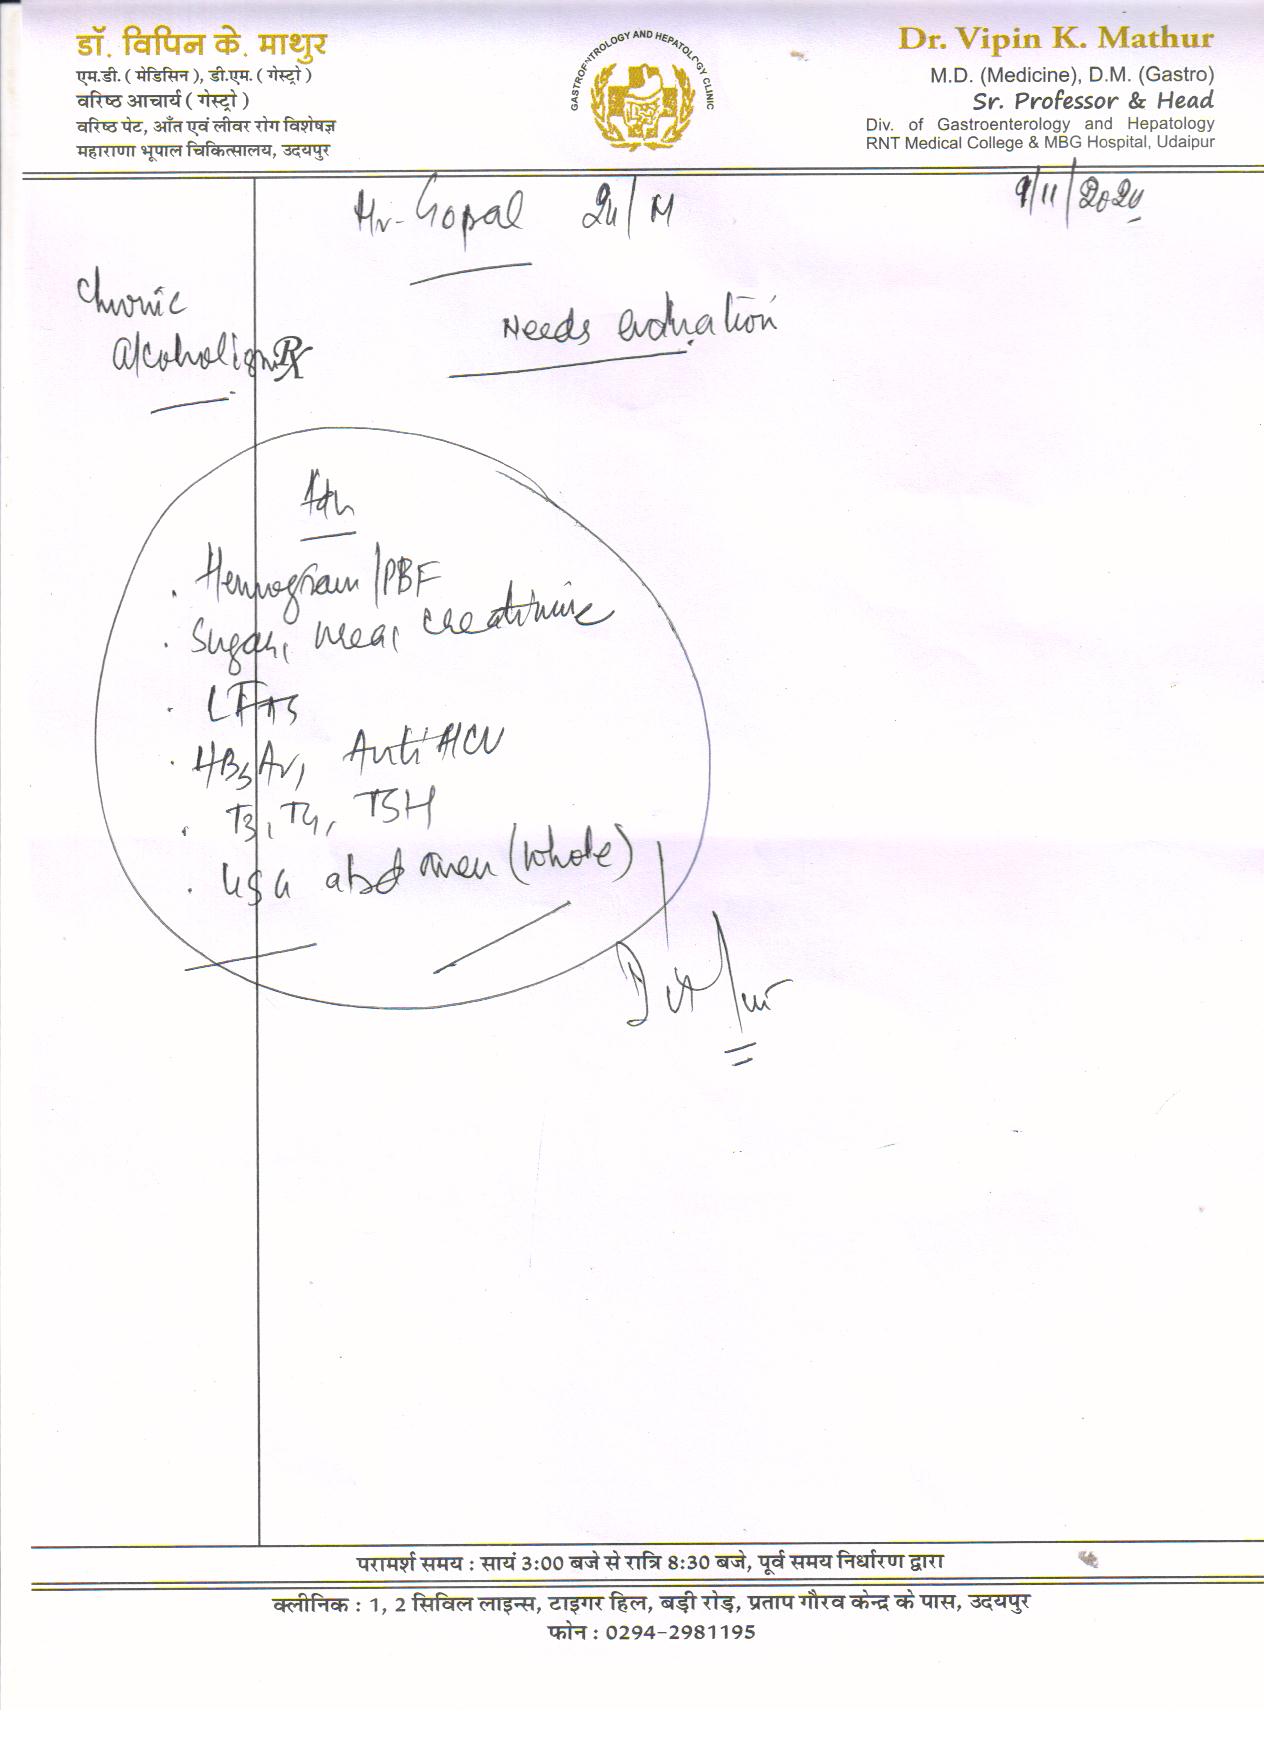 डॉ. विपिन के. माथुर
एम.डी. ( मेडिसिन ), डी.एम. ( गेस्ट्रो )
वरिष्ठ आचार्य ( गेस्ट्रो )
वरिष्ठ पेट, आँत एवं लीवर रोग विशेषज्ञ
महाराणा भूपाल चिकित्सालय, उदयपुर
GASTROENTROLOGY AND HEPATOLOGY CLINIC
Dr. Vipin K. Mathur
M.D. (Medicine), D.M. (Gastro)
Sr. Professor & Head
Div. of Gastroenterology and Hepatology
RNT Medical College & MBG Hospital, Udaipur
Mr. Gopal 24/M
9/11/2024
Chronic
alcoholism
Rx
Needs evaluation
Adv
. Hemogram/PBF
. Sugar, urea, creatinine
. LFTs
. HBsAg, Anti HCV
. T3, T4, TSH
. USG abdomen (whole)
परामर्श समय : सायं 3:00 बजे से रात्रि 8:30 बजे, पूर्व समय निर्धारण द्वारा
क्लीनिक : 1, 2 सिविल लाइन्स, टाइगर हिल, बड़ी रोड़, प्रताप गौरव केन्द्र के पास, उदयपुर
फोन : 0294-2981195